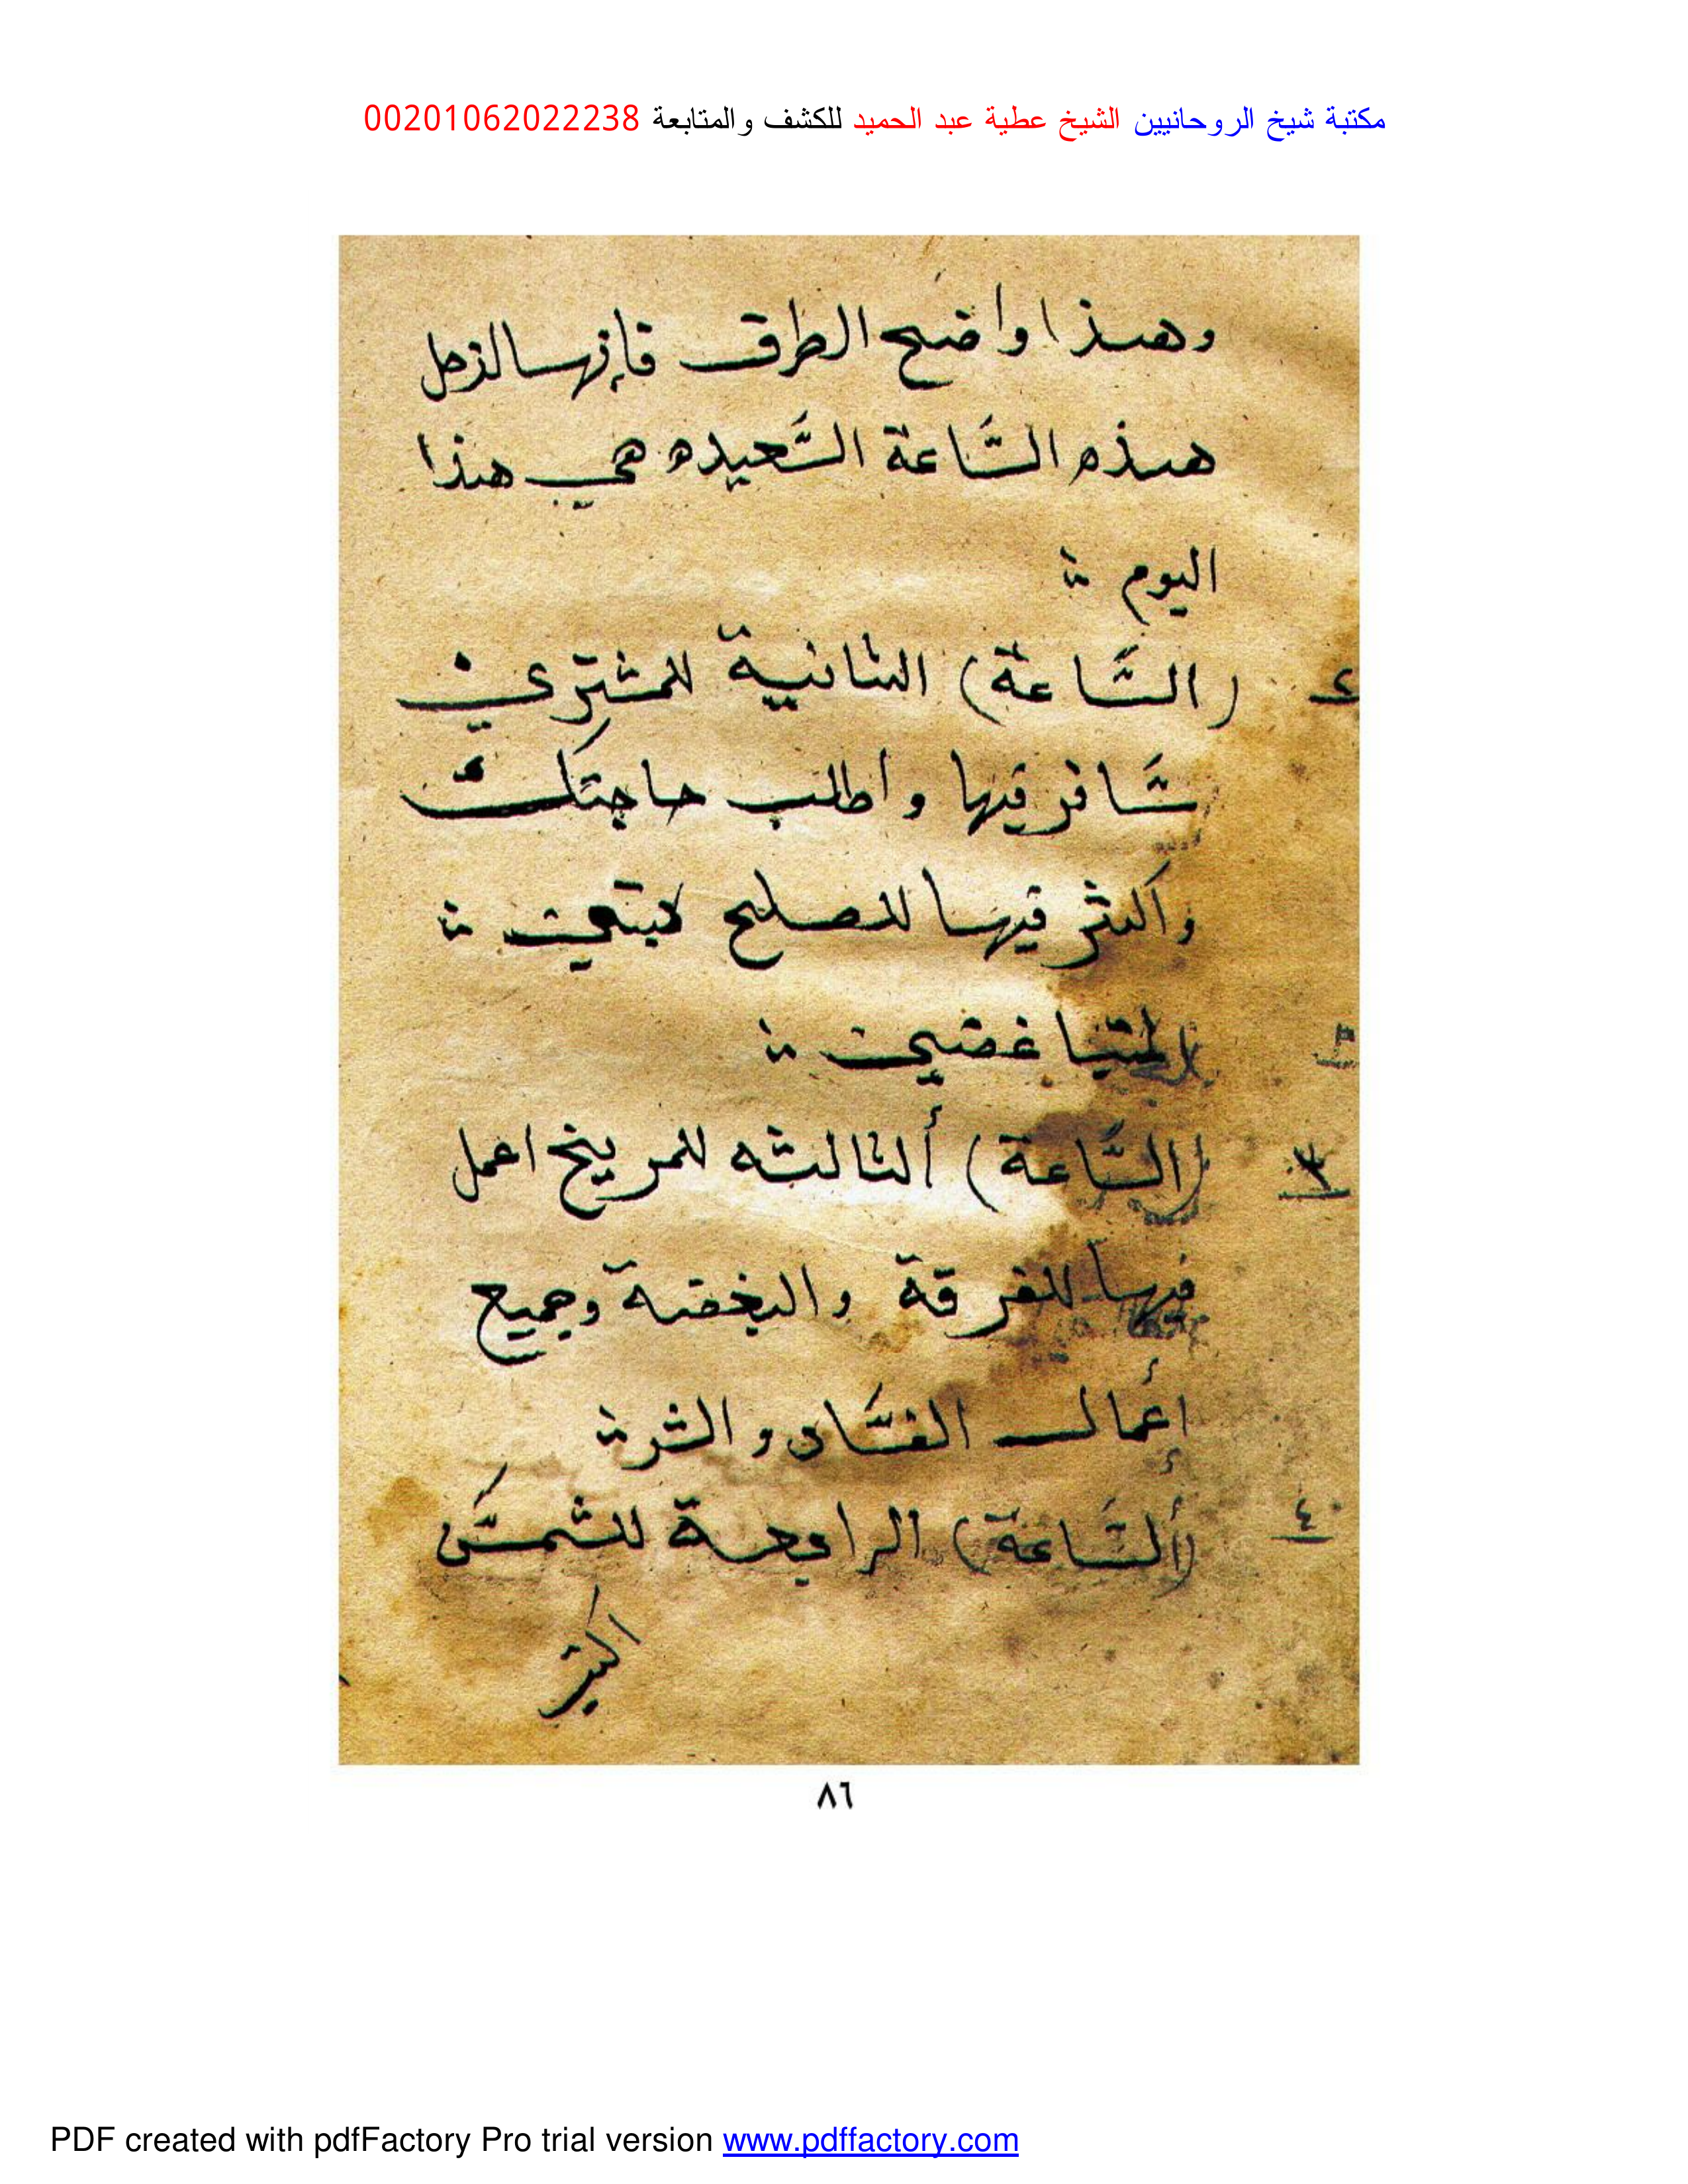 مكتبة شيخ الروحانيين الشيخ عطية عبد الحميد للكشف والمتابعة 00201062022238
وهذا واضح الطرق فإنها لزحل
هذه السَّاعة السَّعيده هي هذا
اليوم
٢ (السَّاعة) الثانية للمشتري
سَافر فيها واطلب حاجتك
واكثر فيها للصلح
٣
٣ (السَّاعة) ألثالثه للمريخ اعمل
فيها للفرقة والبغضة وجميع
أعمال الفسَاد والشر
٤ (ألسَّاعة) الرابعة للشمسَ
اكثر
٨٦
PDF created with pdfFactory Pro trial version www.pdffactory.com